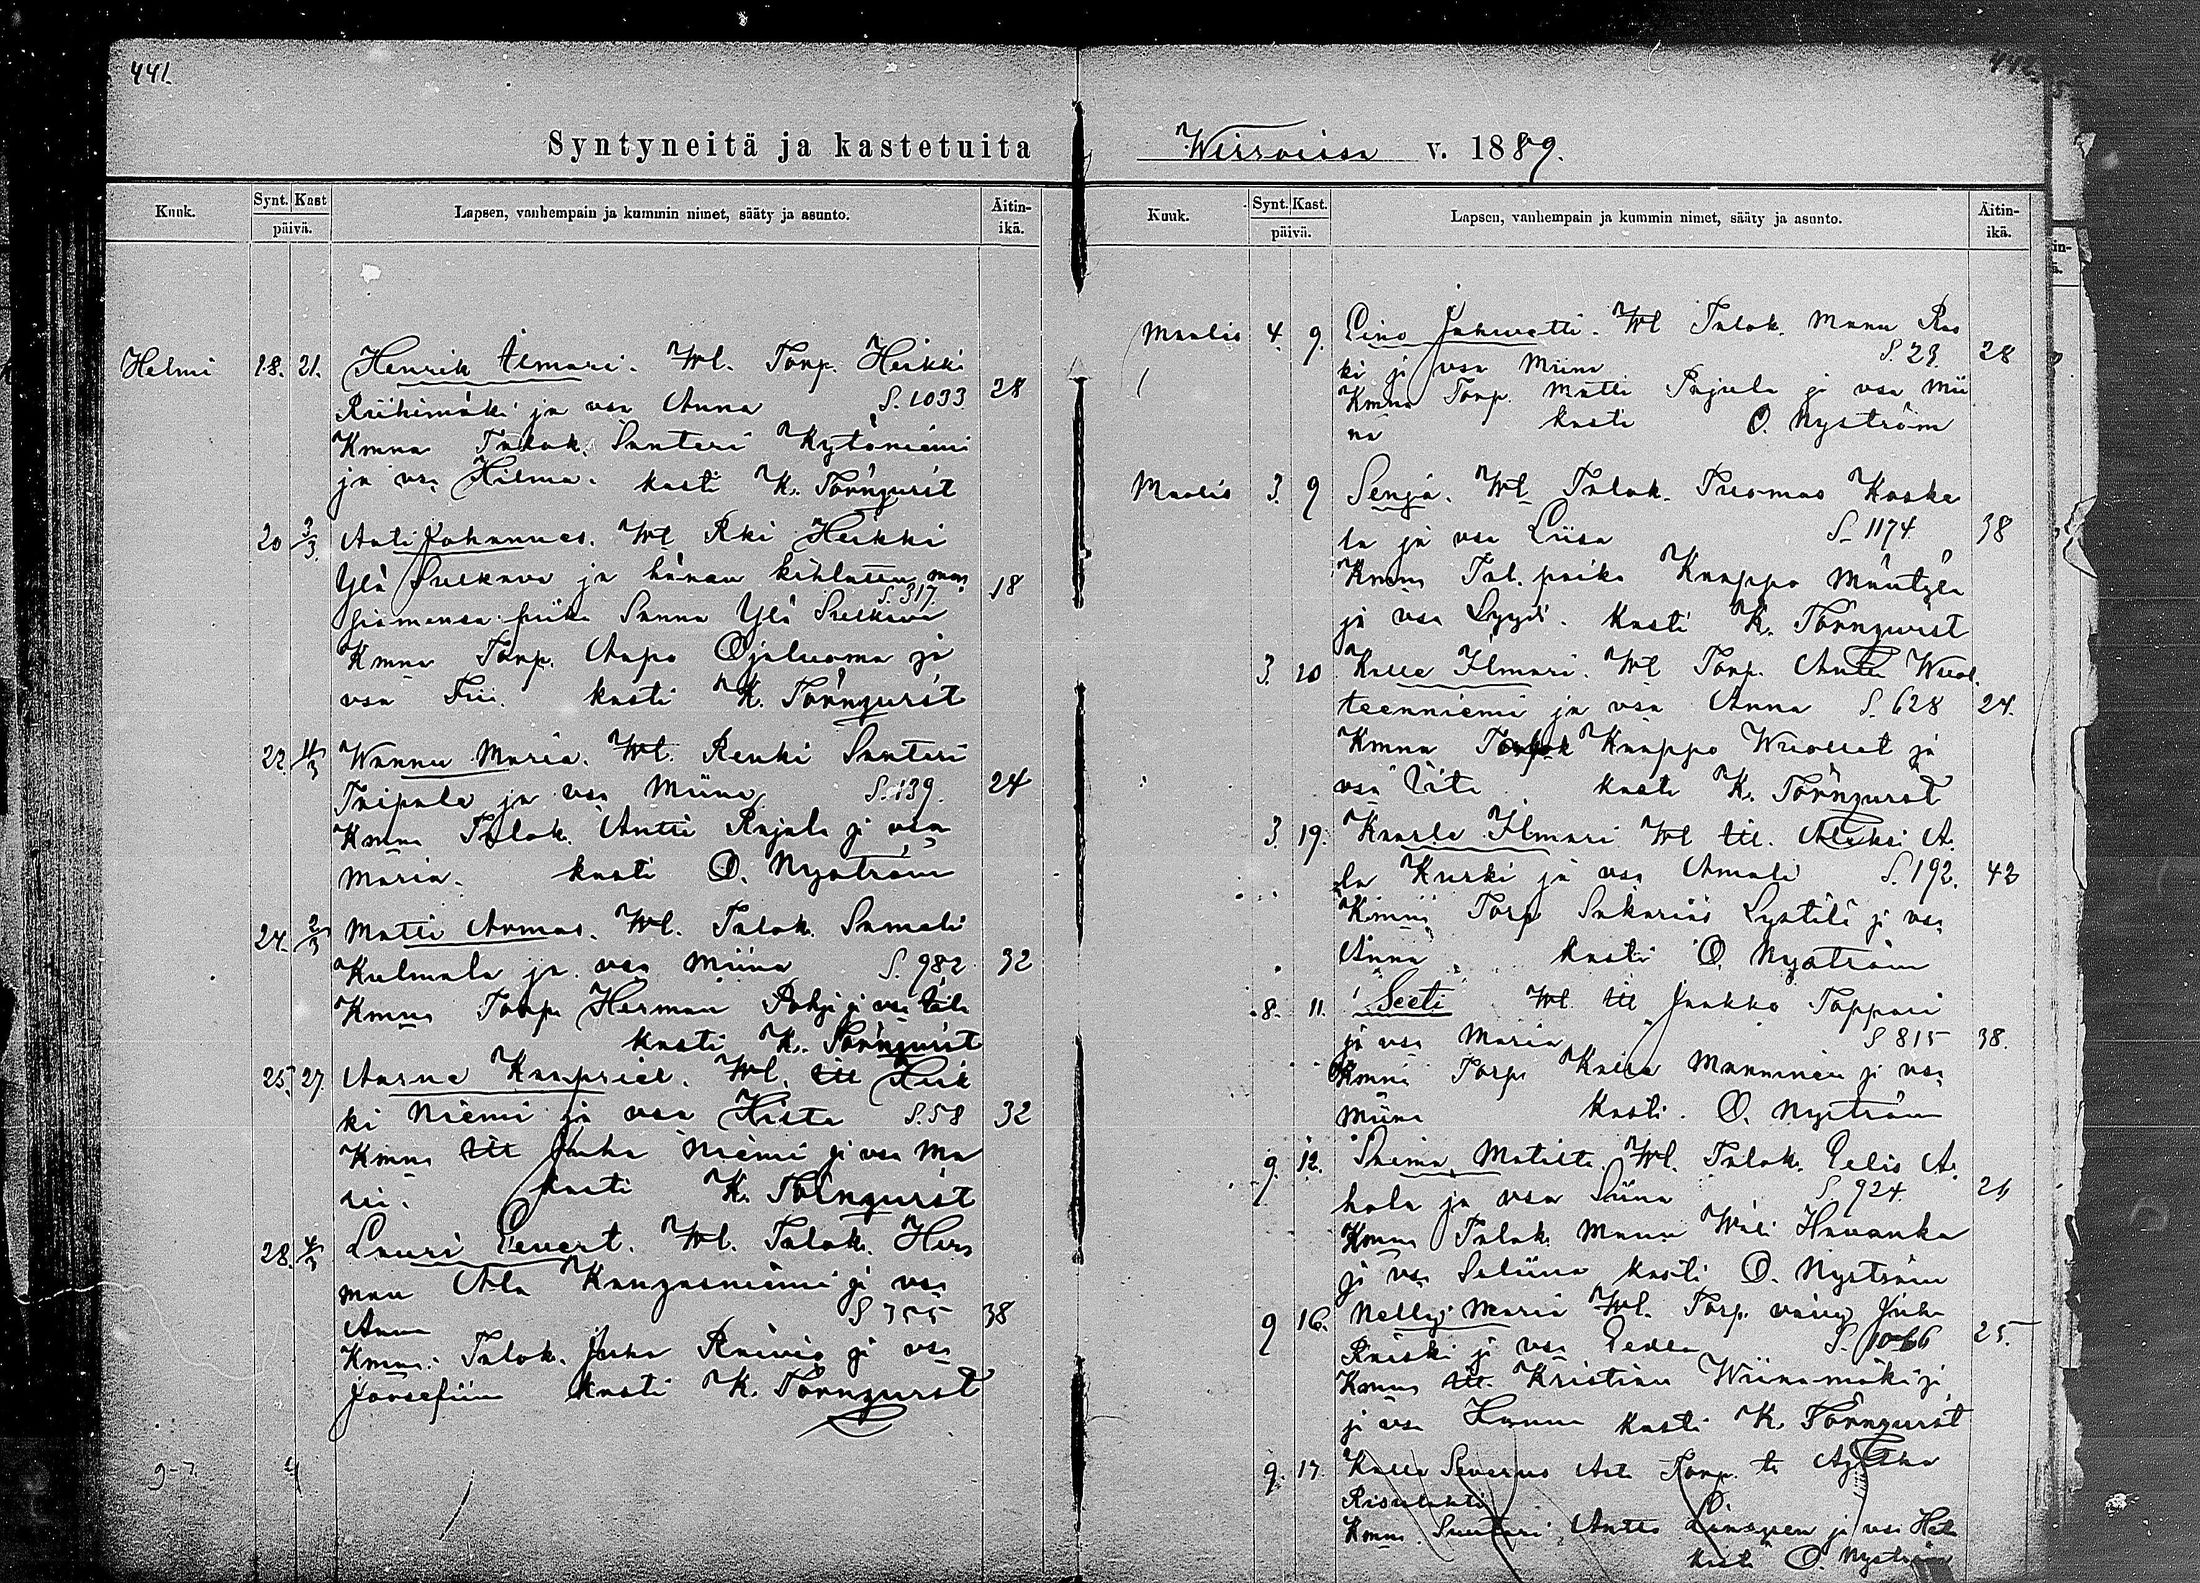 441.
Syntyneitä ja kastetuita
Kuuk.
Synt. Kast
päivä.
Lapsen, vanhempain ja kummin nimet, sääty ja asunto.
Äitin-
ikä.
Helmi 18. 21. Henrik Ilmari. Wl. Torp. Heikki
Riihimäki ja vsa Anna S. 1033. 28
Kmna Talok. Santeri Kytöniemi
ja vsa Hilma. kasti K. Törnqvist
20 3/3 Anti Johannes. Wl Rki Heikki
Ylä Sulkava ja hänen kihlattu mor
siamensa piika Sanna Ylä Sulkava S. 317. 18
Kmna Torp. Aapo Ojaluoma ja
vsa Fii. kasti K. Törnqvist
22. 11/3 Wanna Maria. Wl. Renki Santeri
Taipale ja vsa Miina S. 139. 24
Kmna Talok. Antti Rajala ja vsa
Maria. kasti O. Nyström
24. 2/3 Matti Armas. Wl. Talok. Samali
Kulmala ja vsa Miina S. 982 32
Kmna Torp. Herman ja vsa
kasti K. Törnqvist
25. 27. Aarne Kaapriel. Wl. Itll Heik
ki Niemi ja vsa Hista S. 58 32
Kmna Itll Juha Niemi ja vsa Ma
ria. kasti K. Törnqvist
28. 4/3 Lauri Eevert. Wl. Talok. Her
man Ala Kangasniemi ja vsa
Anna S 355 38
Kmna. Talok. Juha Raivio ja vsa
Joosefiina kasti K. Törnqvist
9-7.
442.
Wirroissa v. 1889.
Kuuk.
Synt. Kast.
päivä.
Lapsen, vanhempain ja kummin nimet, sääty ja asunto.
Äitin-
ikä.
Maalis 4. 9. Eino Juhwetti. Wl Talok. Manu Ras
ki ja vsa Miina S. 29. 28
Kmna Torp. Matti Pajula ja vsa Mii
na kasti O. Nyström
Maalis 3. 9 Senja. Wl Talok. Tuomas Koske
la ja vsa Liisa S. 1174. 38
Kmna Tal. poika Kaappo Mäntylä
ja vsa Lyydi. kasti K. Törnqvist
3. 20 Kalle Ilmari. Wl Torp. Antti Wuol
teenniemi ja vsa Anna S. 628 24.
Kmna Talok Kaappo Wuollet ja
vsa Iita kasti K. Törnqvist
3. 19. Kaarle Ilmari Wl Itll. Aleksi A
la Kurki ja vsa Amali S. 192. 43
Kmna Torp Sakarias Lystilä ja vsa
Anna kasti O. Nyström
8. 11. Seeti Wl Itll Jaakko Toppari
ja vsa Maria S 815 38.
Kmna Torp. Kalle Manninen ja vsa
Miina kasti. O. Nyström
9. 12. Saima Matilta. Wl. Talok. Eelis A
hola ja vsa Siina S. 924. 21
Kmna Talok. Manu Wäli Havanka
ja vsa Seliina kasti O. Nyström
9 16. Nelly Maria Wl. Torp. vävy Juha
Raiski ja vsa Eedla S. 1066 25.
Kmna Itll. Kristian Wiinamäki ja
ja vsa Hanna kasti K. Törnqvist
9. 17. Kalle Severus Act Torp. tr Agatha
Risulahti
Kmna. Suutari Antto ja vsa
kasti O. Nyström